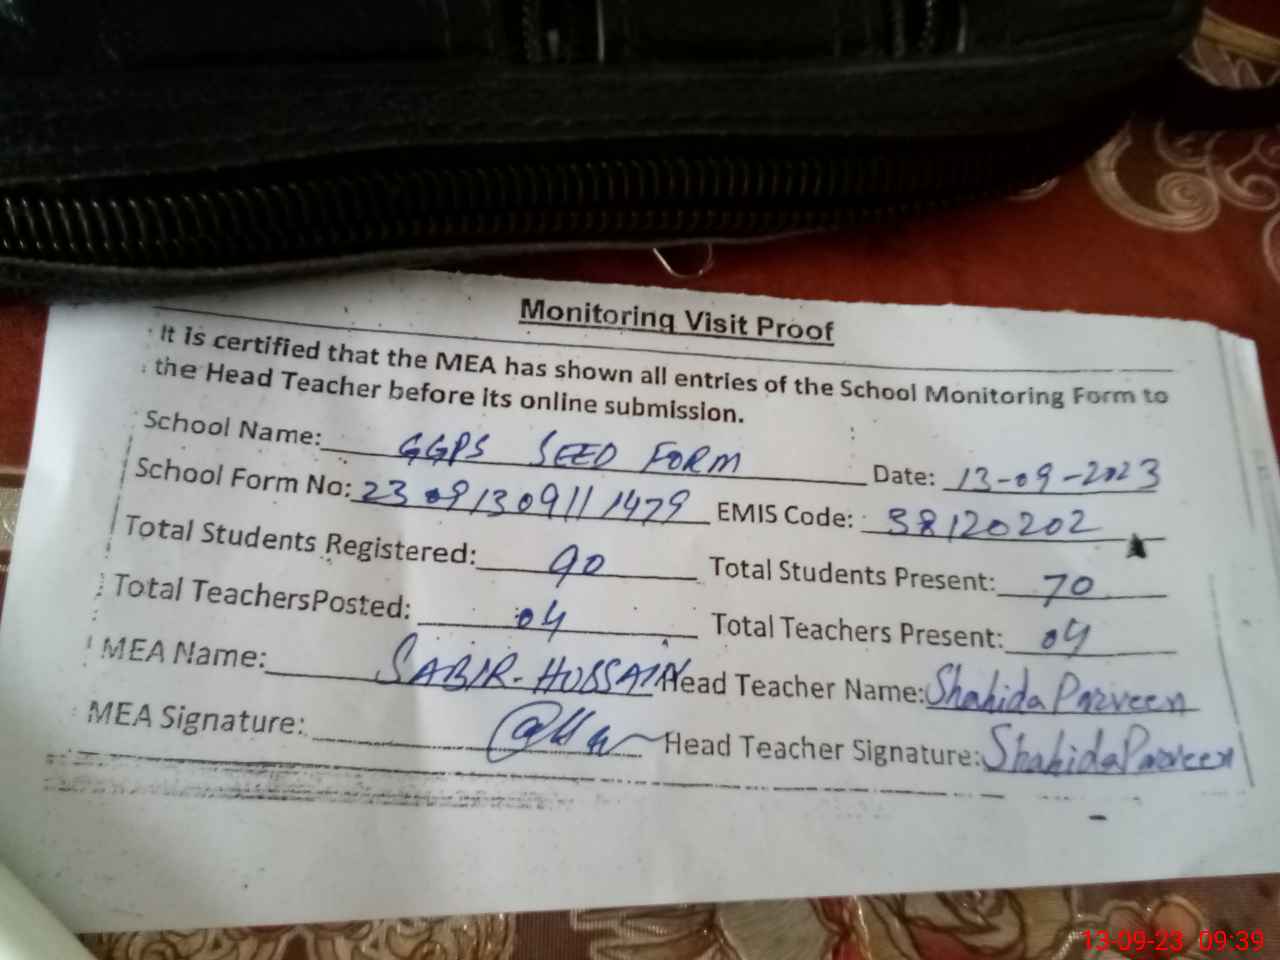 Monitoring Visit Proof
It is certified that the MEA has shown all entries of the School Monitoring Form to
the Head Teacher before its online submission.
School Name: GGPS SEED FORM Date: 13-09-2023
School Form No: 23091309111479 EMIS Code: 38120202
Total Students Registered: 90 Total Students Present: 70
Total TeachersPosted: 04 Total Teachers Present: 04
MEA Name: SABIR-HUSSAIN Head Teacher Name: Shahida Parveen
MEA Signature: Head Teacher Signature: Shahida Parveen
13-09-23 09:39